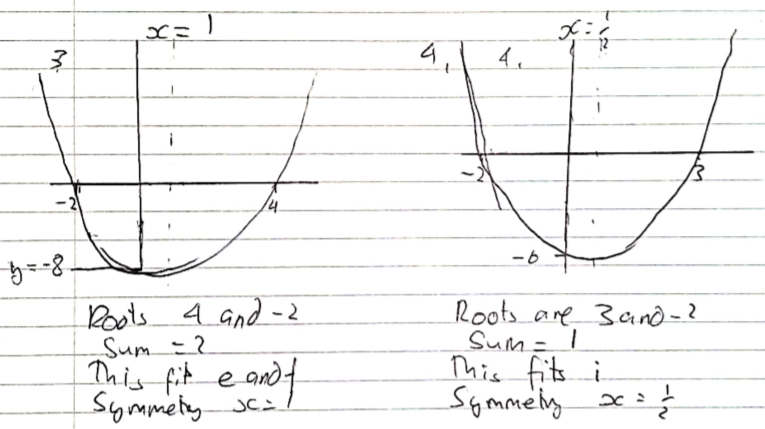 x = 1
3
-2
4
y = -8
Roots 4 and -2
Sum = 2
This fit e and f
Symmetry x = 1
x = 1/2
4, 4.
-2
3
-6
Roots are 3 and -2
Sum = 1
This fits i
Symmetry x = 1/2